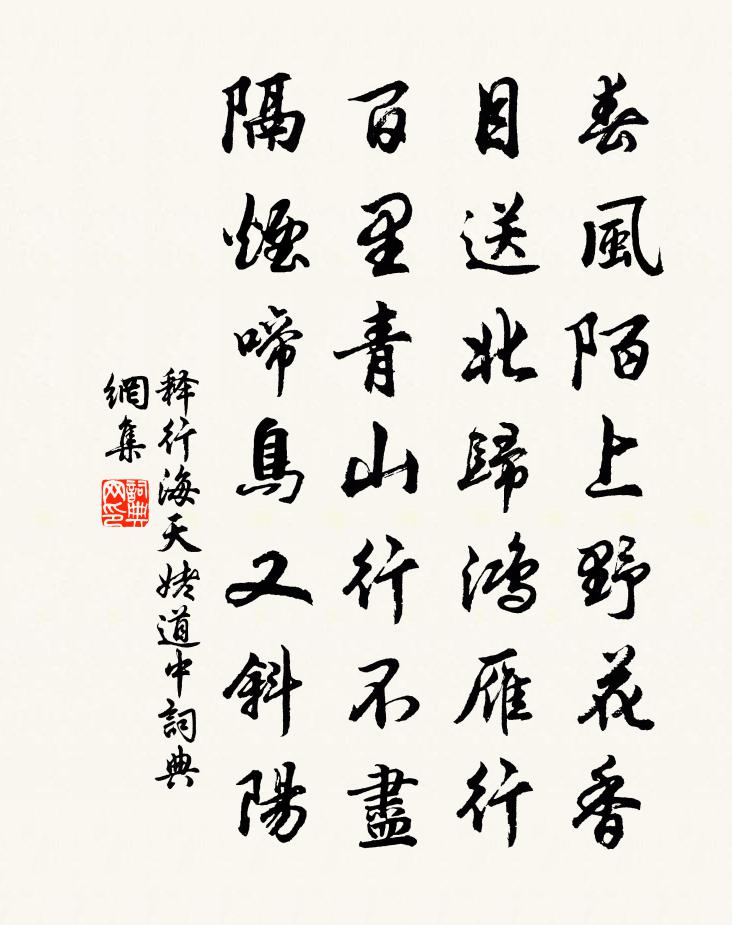 春風陌上野花香
目送北歸鴻雁行
百里青山行不盡
隔煙啼鳥又斜陽
释行海天姥道中詞典
網集
詞典
网印